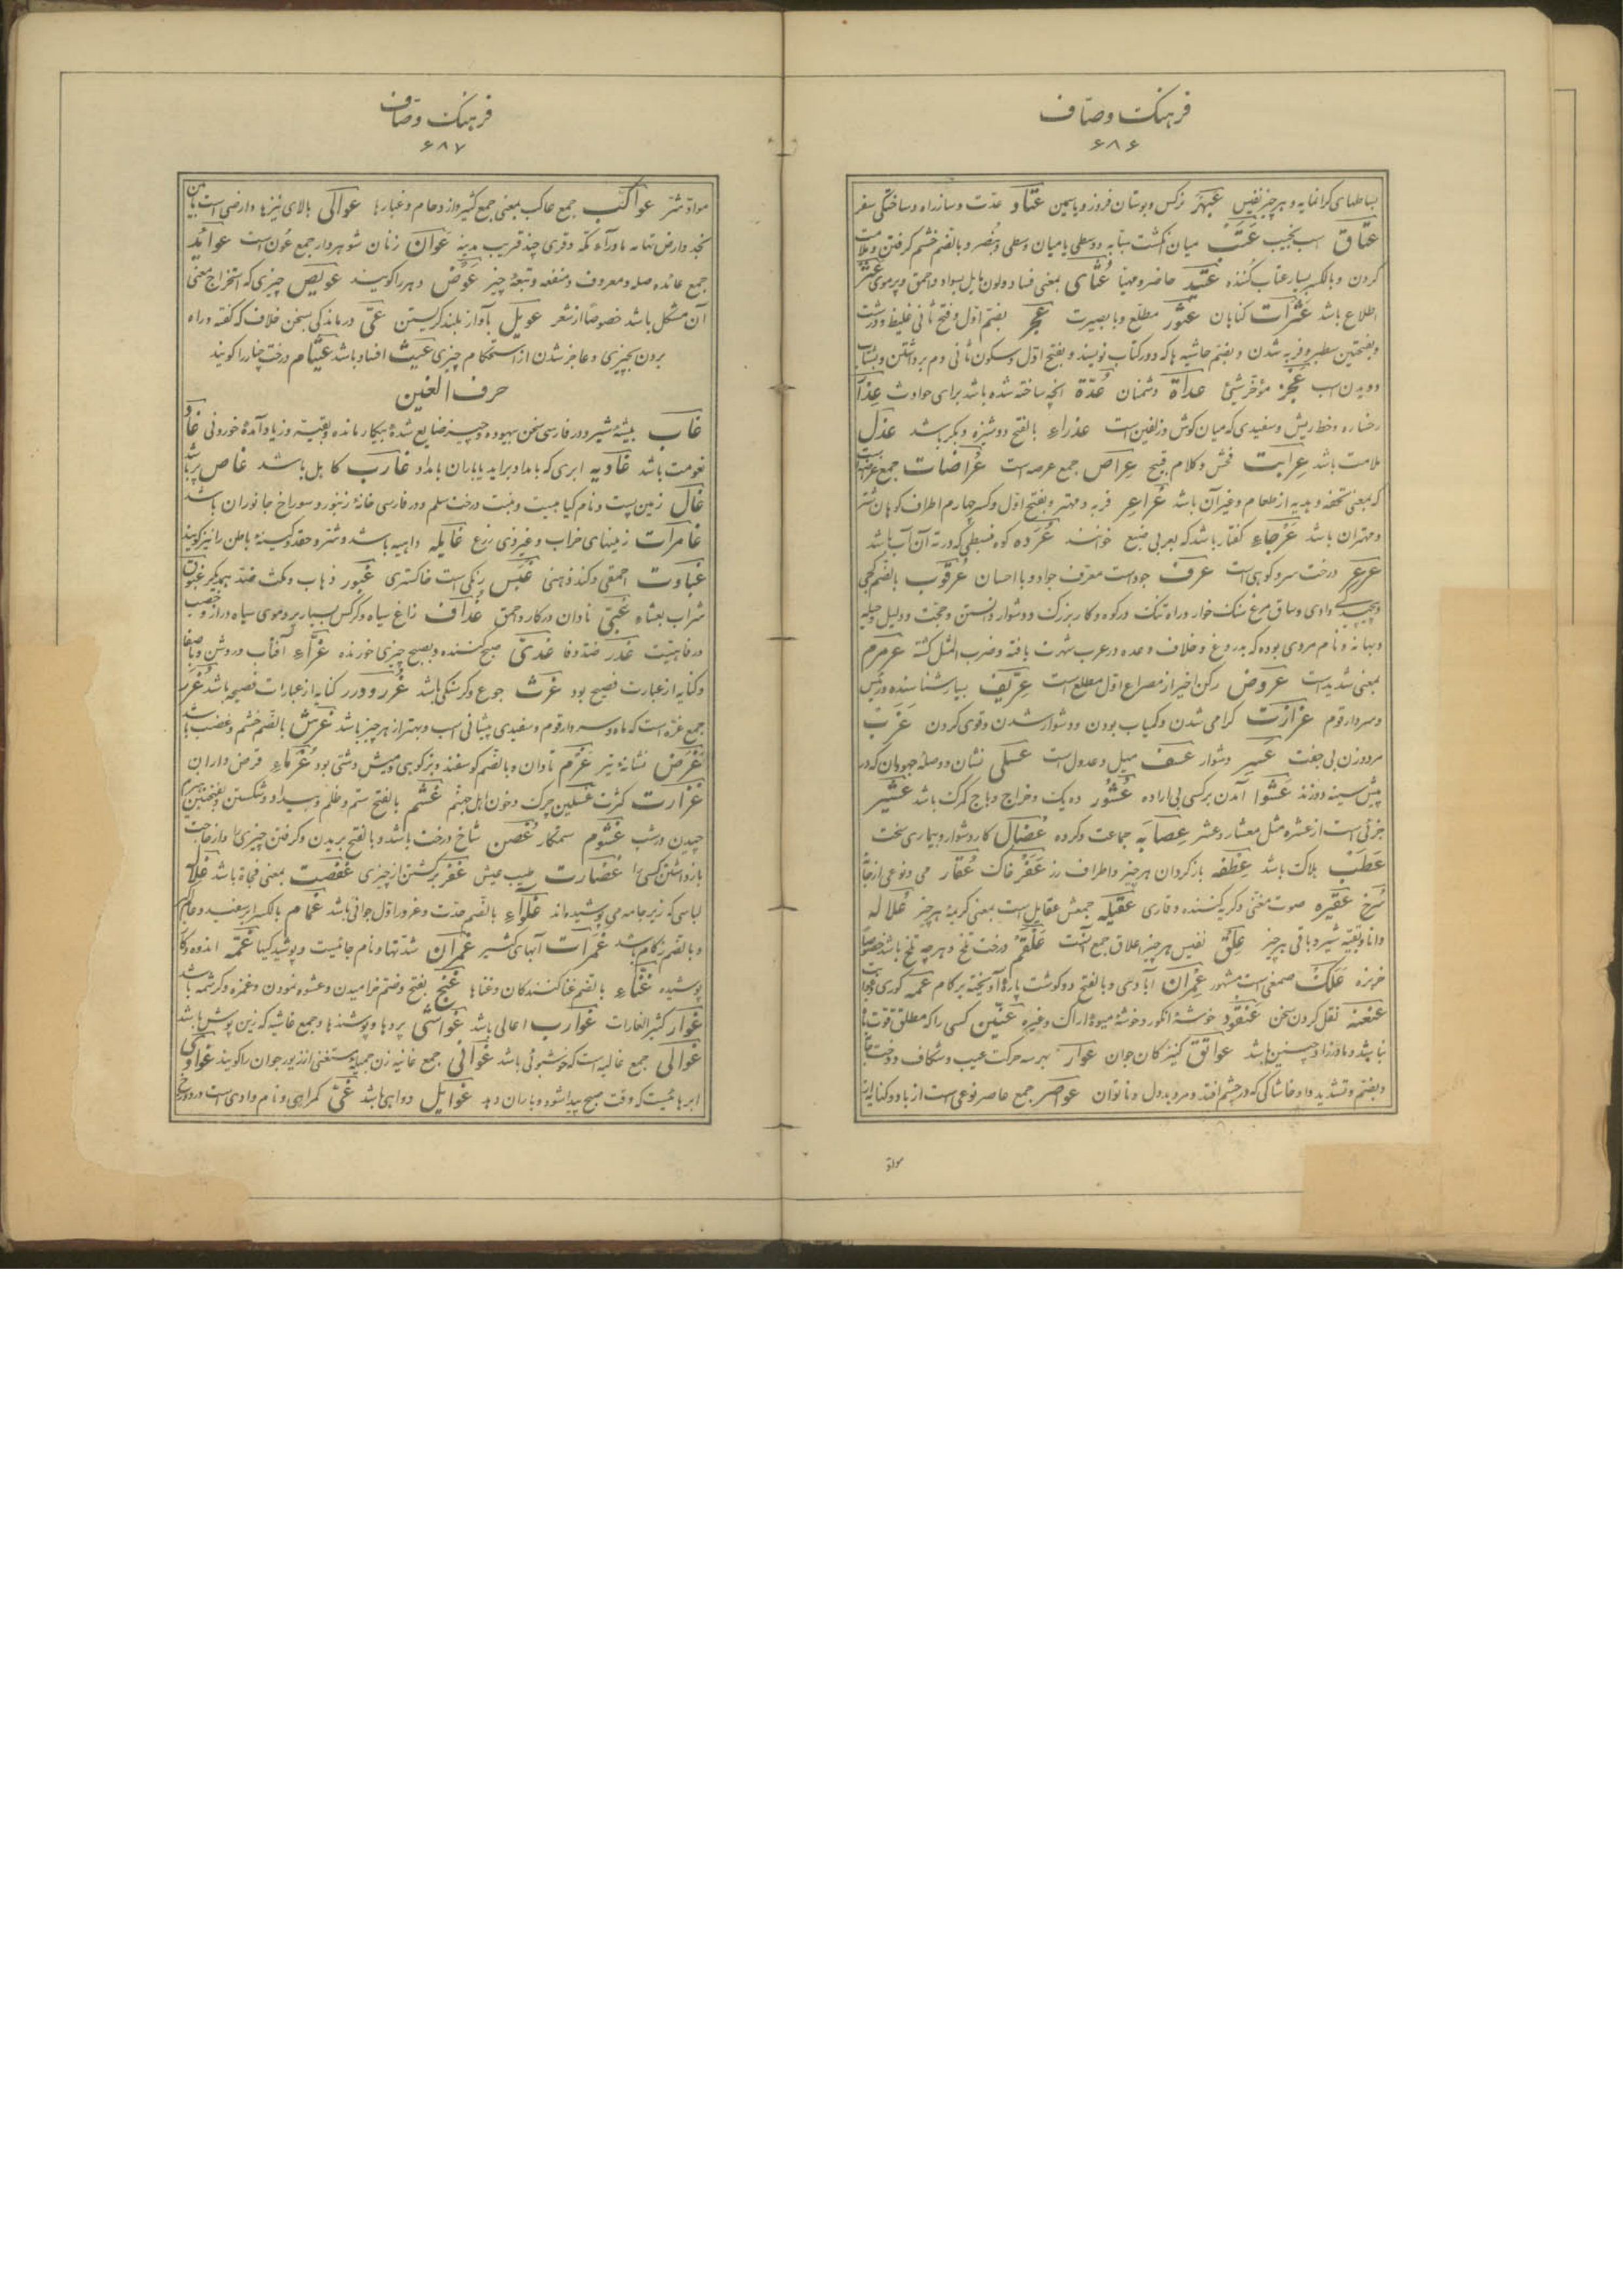 فرهنک وصّاف
۶۸۶
بساطهای کرانمایه و هر چیز نفیس عَبهَر نرکس و بوستان فروز و یاسمین عتاد عدّت و ساز راه و ساختکی سفر
عتاق اسب نجیب عَتَب میان انکشت سبّابه و وسطی یا میان وسطی و بنصر و بالضم خشم کرفتن و ملامت
کردن و بالکسر بسیار عتاب کننده عَتید حاضر و مهیّا عُثای بمعنی فساد و لون مایل بسواد و احمق و پر موی
اطلاع باشد عَثَرات کناهان عثور مطلع و با بصیرت عجر بضم اوّل و فتح ثانی غلیظ و درشت
و بضمتین سطبر و فربه شدن و بضم حاشیه ها که در کتاب نویسند و بفتح اوّل و سکون ثانی دم برداشتن و بشتاب
دویدن اسب عَجُز مؤخر شیئ عداة دشمنان عُدّة آنچه ساخته شده باشد برای حوادث عِذار
رخساره و خط ریش و سفیدی که میان کوش و زلفین است عذراء بالفتح دوشیزه و بکر باشد عذل
ملامت باشد عِرابت فحش و کلام قبیح عِراص جمع عرصه است عُراضات جمع
که بمعنی تحفه و هدیه از طعام و غیر آن باشد عُراعِر فربه و مهتر و بفتح اوّل و کسر چهارم اطراف کوهان شتر
و مهتران باشد عَرجاء کفتار باشد که بعربی ضبع خوانند عُرَده کوه منبسطی که در ته آن آب باشد
عرعر درخت سرو کوهی است عرف جود است معرّف جواد و با احسان عُرقوب بالضم کجی
وادی و ساق مرغ سنک خوار و راه تنک در کوه و کار بزرک و دشوار دانستن و حجّت و دلیل و حیله
و بهانه و نام مردی بوده که بدروغ و خلاف وعده در عرب شهرت یافته و ضرب المثل کشته عَرمرم
بمعنی شدید است عروض رکن اخیر از مصراع اوّل مطلع است عِرّیف بسیار شناسنده و رئیس
و سردار قوم عزازت کرامی شدن و کمیاب بودن و دشوار شدن و قوی کردن عَزَب
مرد و زن بی جفت عسیر دشوار عسف میل و عدول است عسلی نشان و وصلهٔ جهودان که در
پیش سینه دوزند عَشوا آمدن بر کسی بی اراده عُشُور ده یک و خراج و باج کمرک باشد عشیر
جزئی است از عشره مثل معشار و عشر عِصابه جماعت و کروه عُضال کار دشوار و بیماری سخت
عَطَب هلاکت باشد عِطفه باز کردان هر چیز و اطراف رز عَفَر خاک عُقار می و نوعی از
سُرخ عَقیره صوت مغنّی و کریه کننده و قاری عَقیله جمعش عقایل است بمعنی کریمهٔ هر چیز عُلاله
دانا و بقیّه شیر و باقی هر چیز عِلق نفیس هر چیز اعلاق جمع آنست عَلقَم درخت تلخ و هر چه تلخ باشد خصوصاً
خربزه عَلک صمغی است مشهور عِمران آبادی و بالفتح دو کوشت پارهٔ آویخته بر کام عمه کوری
عنعنه نقل کردن سخن عنقود خوشهٔ انکور و خوشهٔ میوهٔ اراک و غیره عِنّین کسی را که مطلق قوّت
نباشد و مادرزاد چنین باشد عواتق کنیزکان جوان عوار بهر سه حرکت عیب و شکاف و دوخت
و بضم و تشدید داد و خاشاکی که در چشم افتد و مرد بد دل و ناتوان عواصر جمع عاصر نوعی است از باد و کنایه از
مواد
فرهنک وصّاف
۶۸۷
مواد شتر عواکب جمع عاکب بمعنی جمع کثیر و ازدحام و غبارها عوالی بالای نیزها و اراضی است
نجد و ارض تهامه ماوراء مکّه و قری چند قریب مدینه عوان زنان شوهردار جمع عُون است عوائد
جمع عائده صله و معروف و منفعه و تبعهٔ چیز عَوض دهر را کویند عویص چیزی که استخراج معنی
آن مشکل باشد خصوصاً از شعر عویل بآواز بلند کریستن عیّ درماندکی بسخن خلاف که کفته و راه
برون بچیزی و عاجز شدن از استحکام چیزی عَیث افساد باشد عیثام درخت چنار را کویند
حرف الغین
غاب بیشهٔ شیر و در فارسی سخن بیهوده و چیز ضایع شدهٔ بیکار مانده و بقیّت و زیاد آمدهٔ خوردنی
نعومت باشد غادیه ابری که بامداد برآید یا باران بامداد غارب کاهل باشد غاص
غال زمین پست و نام کیاهیست و منبت درخت سلم و در فارسی خانهٔ زنبور و سوراخ جانوران باشد
غامرات زمینهای خراب و غیر ذی زرع غایله داهیه باشد و شرّ و حقد و کینهٔ باطن را نیز کویند
غباوت احمقی و کند ذهنی غُبَس رنکی است خاکستری غبور ذهاب و مکث ضدّ یکدیکر
شراب بعشاه غبیّ نادان در کار و احمق غُداف زاغ سیاه و کرکس بسیار پر و موی سیاه دراز و خصب
و رفاهیّت غَدَر ضدّ وفا غدیّ صبح کننده و بصبح چیزی خورنده غَرّاء آفتاب و روشن و با صفا
و کنایه از عبارت فصیح بود غرث جوع و کرسنکی باشد غُرر و درر کنایه از عبارات فصیحه باشد
جمع غرّه است که ماه و سردار قوم و سفیدی پیشانی اسب و بهتر از هر چیز باشد غرش بالضم خشم و غضب باشد
غَرَض نشانهٔ تیر غُرم تاوان و بالضم کوسفند و بز کوهی و میش دشتی بود غُرَماء قرض داران
غزارت کثرت غسلین چرک و خون اهل جهنّم غَشم بالفتح ستم و ظلم و بیداد و شکستن و بفتحتین
چیدن در شب غشوم ستمکار غُصن شاخ درخت باشد و بالفتح بریدن و کرفتن چیزی
بازداشتن کسی را غضارت طیب عیش غفر برکشتن از چیزی غفصت بمعنی فجاة باشد
لباسی که زیر جامه می پوشیده اند غُلَواء بالضم حدّت و غرور اوّل جوانی باشد غمام بالکسر ابر سفید و
و بالضم زکام باشد غَمَرات آبهای کثیر غمران شدّتها و نام جائیست و پوشیدکیها غمّه اندوه و
پوشیده غنّاء بالضم غنا کنندکان و غناها غُنج بفتح و ضم خرامیدن و عشوه نمودن و غمزه و کرشمه باشد
غوار کثیر الغارات غوارب اعالی باشد غواشی پردها و پوشندها و جمع غاشیه که زین پوش باشد
غوالی جمع غالیه است که خوشبوئی باشد غوانی جمع غانیه زن جمیلهٔ مستغنی از زیور جوان را کویند غوادی
ابرهائیست که وقت صبح پیدا شود و باران دهد غوایل دواهی باشد غیّ کمراهی و نام وادی است در دوزخ